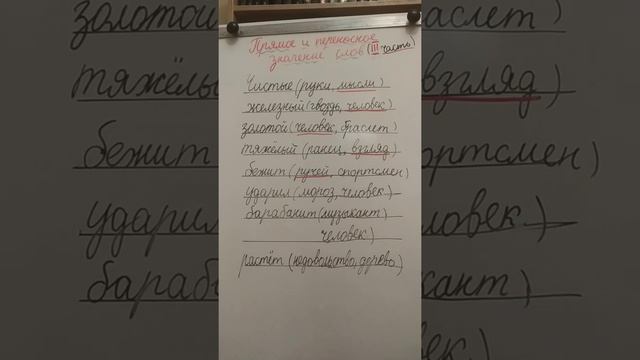 Прямое и переносное
значение слов (III часть)
Чистые (руки, мысли)
железный (гвоздь, человек)
золотой (человек, браслет)
тяжёлый (ранец, взгляд)
бежит (ручей, спортсмен)
ударил (мороз, человек)
барабанит (музыкант
человек)
растёт (недовольство, дерево)